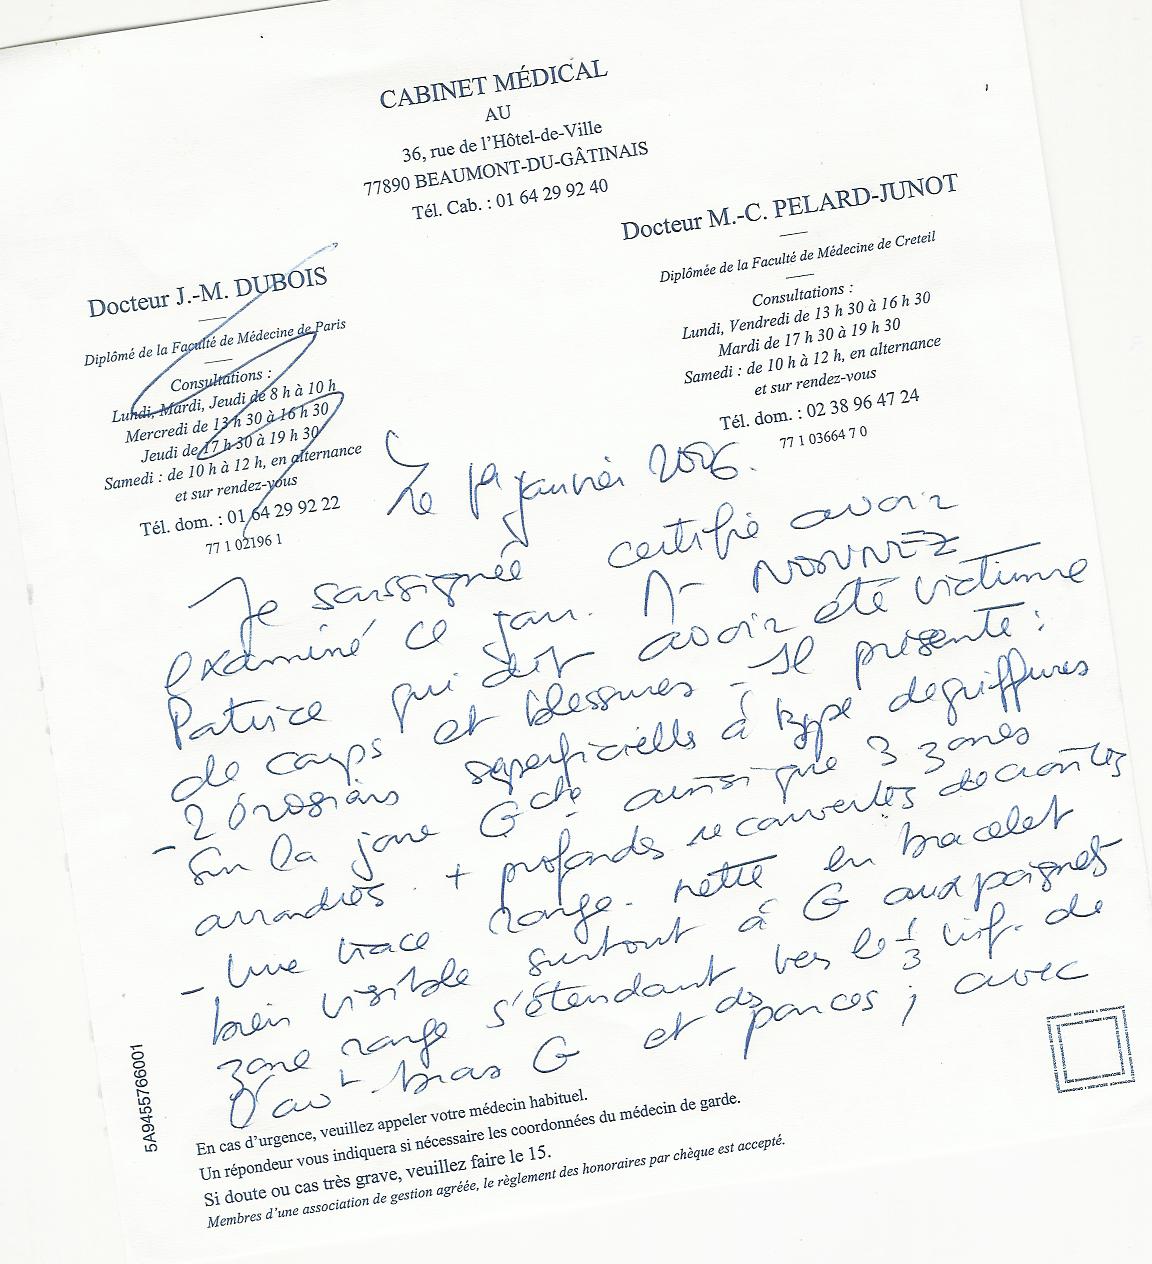 CABINET MÉDICAL
AU
36, rue de l'Hôtel-de-Ville
77890 BEAUMONT-DU-GÂTINAIS
Tél. Cab. : 01 64 29 92 40
Docteur M.-C. PELARD-JUNOT
Diplômée de la Faculté de Médecine de Creteil
Consultations :
Lundi, Vendredi de 13 h 30 à 16 h 30
Mardi de 17 h 30 à 19 h 30
Samedi : de 10 h à 12 h, en alternance
et sur rendez-vous
Tél. dom. : 02 38 96 47 24
77 1 03664 7 0
Docteur J.-M. DUBOIS
Diplômé de la Faculté de Médecine de Paris
Consultations :
Lundi, Mardi, Jeudi de 8 h à 10 h
Mercredi de 13 h 30 à 16 h 30
Jeudi de 17 h 30 à 19 h 30
Samedi : de 10 h à 12 h, en alternance
et sur rendez-vous
Tél. dom. : 01 64 29 92 22
77 1 02196 1
Le 1er janvier 2006.
Je soussignée certifie avoir
examiné ce jour. Mr NOUNEZ
Patrice qui dit avoir été victime
de coups et blessures - Il présente :
- 2 érosions superficielles à type de griffures
sur la joue Gche ainsi que 3 zones
arrondies + profondes recouvertes de croûtes
- Une trace rouge nette en bracelet
bien visible surtout à G aux poignets
zone rouge s'étendant vers le 1/3 inf. de
l'avt bras G et ds pouces ; avec
5A9455766001
En cas d'urgence, veuillez appeler votre médecin habituel.
Un répondeur vous indiquera si nécessaire les coordonnées du médecin de garde.
Si doute ou cas très grave, veuillez faire le 15.
Membres d'une association de gestion agréée, le règlement des honoraires par chèque est accepté.